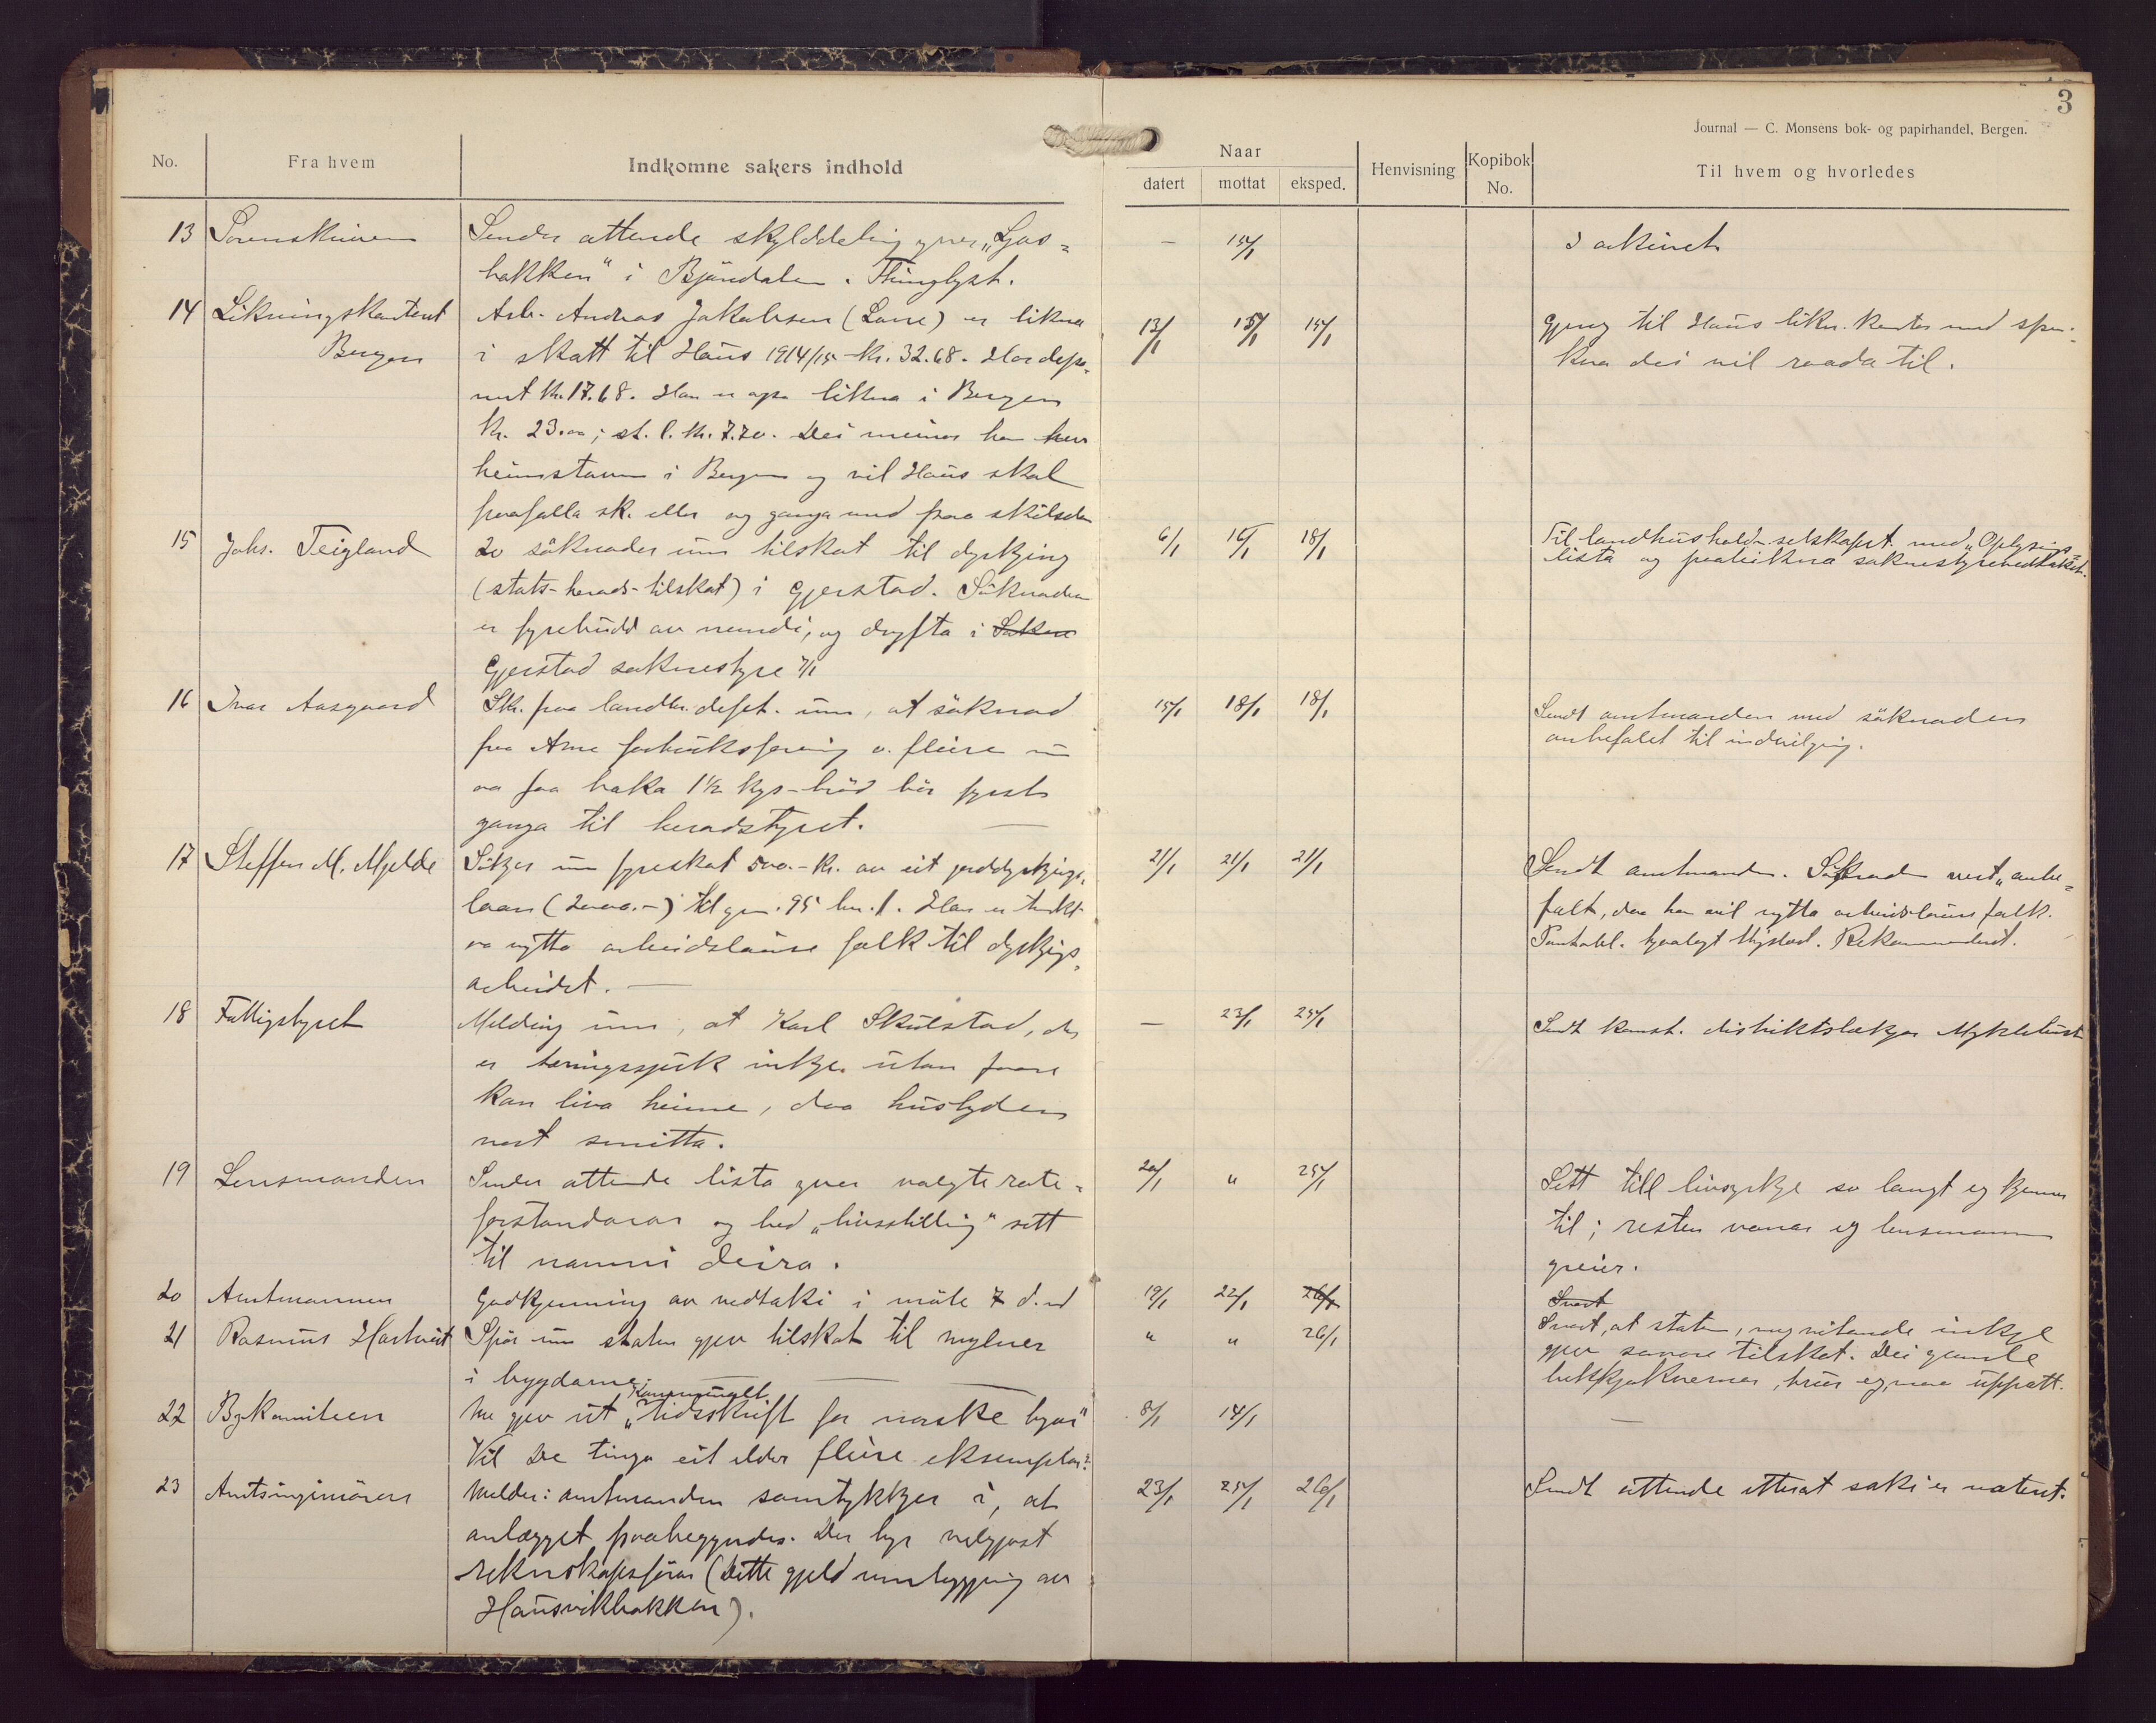 3
Journal — C. Monsens bok- og papirhandel, Bergen.
No. Fra hvem Indkomne sakers indhold
Naar
datert mottat eksped. Henvisning Kopibok No. Til hvem og hvorledes
13 Sorenskriveren Sender attende skylddeling yver „Ljos=
bakken" i Bjørndalen. Thinglyst.
— 15/1 I arkivet
14 Likningskontoret Arb. Andreas Jakobsen (Lone) er likna
Bergen i skatt til Haus 1914/15 kr. 32.68. Har depo-
nert kr. 17.68. Han er og likna i Bergen
kr. 23.00; st. l. kr. 7.20. Dei meiner han
heimstavn i Bergen og vil Haus skal
fraafalla sk. eller og ganga med paa
13/1 15/1 15/1 Gjeng til Haus likn. kontor med spur-
dei vil raada til.
15 Johs. Teigland 20 søknader um tilskot til dyrkjing
(stats-herads-tilskot) i Gjerstad. Søknaden
er fyrebudd av nemndi, og drøfta i Sokne
Gjerstad soknestyre 7/1
6/1 16/1 18/1 Til landhusholdn.selskapet med „Oplysnings-
lista og soknestyrevedtaket.
16 Ivar Aasgaard Skr. fraa landbr. depet. um, at søknad
fraa Arne forbruksforening o. fleire um
aa faa baka 1½ kgs-brød bør fyrst
ganga til heradstyret. —
15/1 18/1 18/1 Sendt amtmanden med søknaden
anbefalet til indvilging.
17 Steffen M. Mjelde Søkjer um fyreskot 500.- kr. av eit jorddyrkjings-
laan (2000.-) til gn. 95 br. 1. Han er tenkt
aa nytta arbeidslause folk til dyrkjings-
arbeidet. —
21/1 21/1 21/1 Sendt amtmanden. Søknaden vert „anbe=
falt, daa han vil nytta arbeidslause folk.
Rekommandert.
18 Fattigstyret Melding um, at Karl Skulstad, der
er tæringssjuk inkje utan faare
kan liva heime, daa huslyden
vert smitta.
— 23/1 25/1 Sendt konst. distriktslækjar Myklebust
19 Lensmanden Sender attende lista yver valgte rote-
forstandarar og bed „livsstilling" sett
til namni deira.
20/1 " 25/1 Sett till livsyrkje so langt eg kjenner
til; resten vonar eg lensmannen
greier.
20 Amtmannen Godkjenning av vedtaki i møte 7 d. m
19/1 22/1 26/1 Svart
21 Rasmus Hartveit Spør um staten gjev tilskot til mylner
i bygdarne. — — —
" " 26/1 Svart, at staten, meg vitande inkje
gjev sovore tilskot. Dei gamle
bekkjakvernar, trur eg, maa uppatt.
22 Bykomiteen Me gjev ut „Kommunalt tidsskrift for norske byer"
Vil De tinga eit elder fleire eksemplar?
8/1 14/1 —
23 Amtsingeniøren Melder: amtmanden samtykkjer i, at
anlægget paabegyndes. Der byr velgjort
reknskapsførar (Dette gjeld umlegging av
Hausvikbakken).
23/1 25/1 26/1 Sendt attende etterat saki er notert.